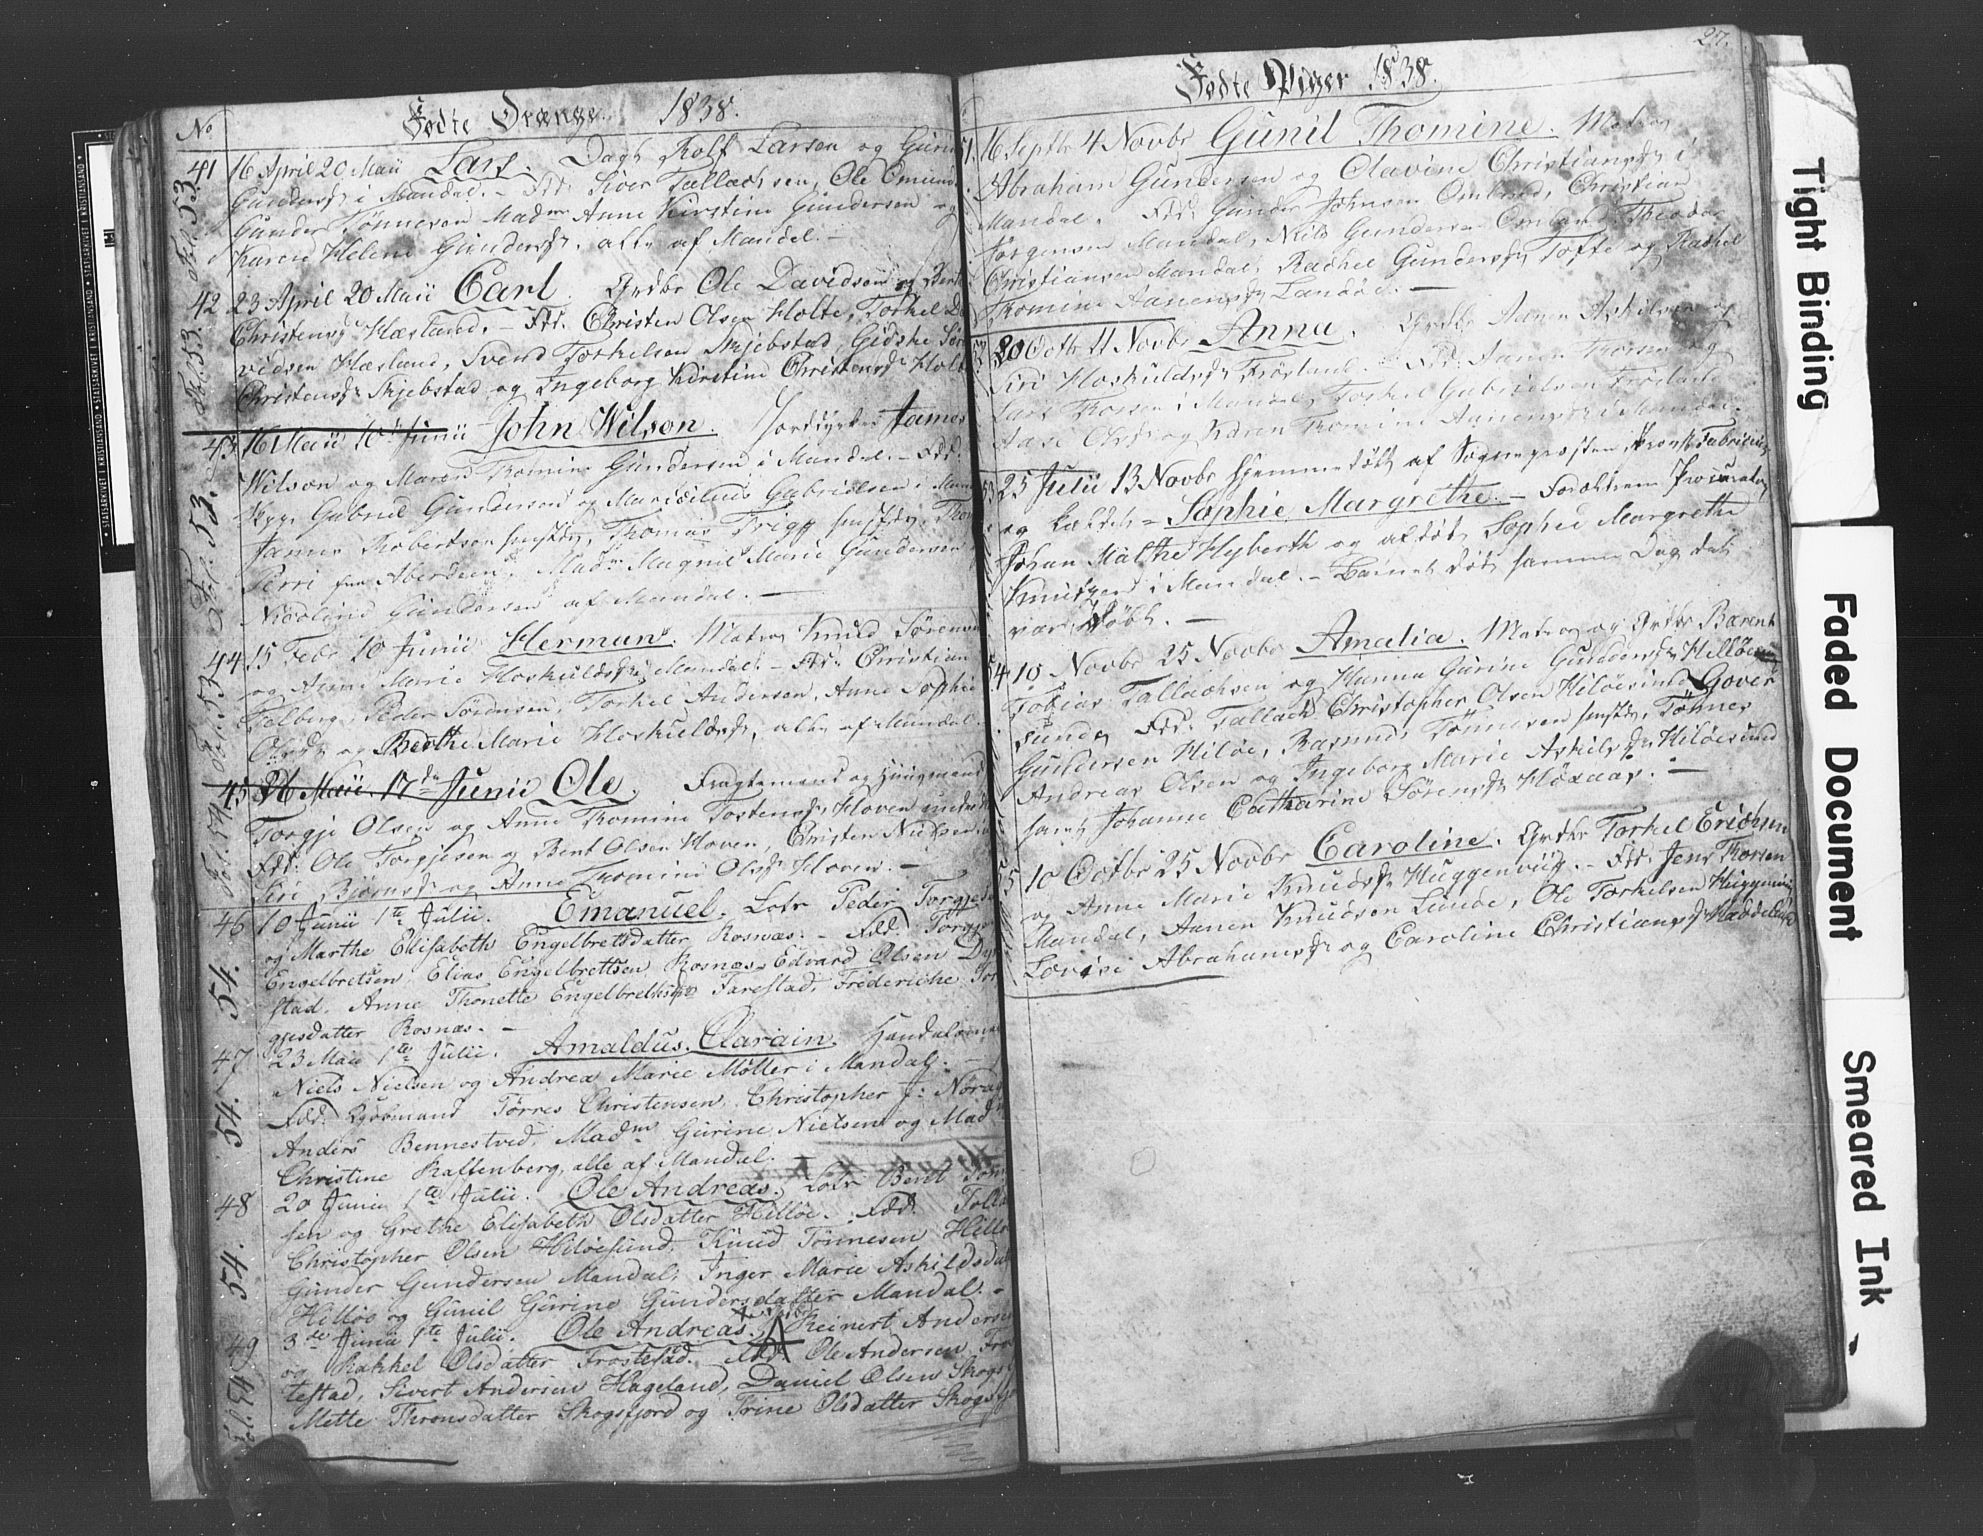 No Fødte Drænge. 1838.
41 16 April 20 Maii Lars. Dagl. Rolf Larsen og Guri
Gundersd. i Mandal. – Fdd: Siver Tallachsen, Ole Omund
Gunder Tønnesen Madm Anne Kirstine Gundersen og
Karen Helene Gundersd. alle af Mandal. –
Fol. 53.
42 23 April 20 Maii Carl. Grdbr Ole Davidsen og Berte
Christensd. Hæsland. – Fdd: Christen Olsen Holte, Torkel Da
vidsen Hæsland, Svend Torkelsen Skjebstad, Gidske
Christensd. Skjebstad og Ingeborg Kirstine Christensd. Holt
Fol. 53.
43 16 Maii 10 Junii John Wilson. Jorddyrker James
Wilson og Maren Thomine Gundersen i Mandal. – Fdd:
Gabriel Gundersen og Gabrielsen i Man
James Robertson Thomas Frigg Thom
Perri fra Aberdeen, Madm Magnil Marie Gundersen
Nicoline Gundersen af Mandal. –
Fol. 53.
44 15 Febr 10 Junii Herman. Matros Knud Sørensen
og Anne Marie Hoskuldsd. i Mandal. – Fdd: Christian
Tolberg, Peder Sørensen, Torkel Andersen, Anne Sophie
Olsd. og Berthe Marie Hoskuldsd., alle af Mandal.
Fol. 53
45 26 Maii 17de Junii Ole. Fragtemand og Huusmand
Torgje Olsen og Anne Thomine Tostensd. Hoven
Fdd: Ole Torgjesen og Bent Olsen Hoven, Christen Nielsen
Siri Bjørnsd. og Anne Thomine Olsd. Hoven. –
Fol. 54.
46 10 Junii 1te Julii. Emanuel. Lods Peder Torgjes
og Marthe Elisabeth Engelbrettsdatter Rosnæs. – Fdd: Torgje
Engelbretsen, Elias Engelbrettsen Rosnæs Edvard Olsen Dy
stad, Anne Thonette Engelbretsen Farestad, Frederiche Tor
gjesdatter Rosnæs. –
54.
47 23 Maii 1te Julii. Amaldus Clarain. Handelsmand
Niels Nielsen og Andrea Marie Møller i Mandal. –
Fdd. Kjøbmand Tørres Christensen, Christopher J: Nørag
Anders Bennestved, Madm Gurine Nielsen og Madm
Christine Raffenberg, alle af Mandal.
54.
48 20 Junii 1te Julii. Ole Andreas. Lods Berent Tønne
sen og Grethe Elisabeth Olsdatter Hilløe. Fdd. Tolla
Christopher Olsen Hiløesund, Knud Tønnesen Hillø
Gunder Gundersen Mandal, Inger Marie Askildsdat
Hilløe og Gunil Gurine Gundersdatter Mandal. –
54.
49 3de Junii 1te Julii. Ole Andreas. Reinert Andersen
og Rakkel Olsdatter Frostestad. Fdd: Ole Andersen Fro
testad, Sivert Andersen Hageland, Daniel Olsen Skogsfj
Mette Thronsdatter Skogsfjord og Trine Olsdatter Skogsfj
Fol. 54
27.
Fødte Piger 1838.
51. 16 Septbr 4 Novbr Gunil Thomine. Matros
Abraham Gundersen og Olavine Christiansd. i
Mandal. Fdd: Gunder Johnsen Omland, Christian
Jørgensen Mandal, Niels Gundersen Omland, Theodor
Christiansen Mandal, Rachel Gundersd. Tofte og Rachel
Thomine Aanensd. Landøe. –
20 Octbr 11 Novbr Anna. Grdbr Aanen Askilsen og
Siri Hoskuldsd. Frøsland. – Fdd: Aanen Thorsen og
Lars Thorsen i Mandal, Torkel Gabrielsen Frøsland
Aase Olsd. og Karen Thomine Aanensd. i Mandal.
53 25 Julii 13 Novbr hjemmedøbt af Sognepresten, Provst Fabricius
og kaldet = Sophie Margrethe. – Forældrene Procurator
Johan Malthe Hyberth og Sophie Margrethe
Knutzen i Mandal. – Barnet døde samme Dag det
var døbt. –
54 10 Novbr 25 Novbr Amalia. Matros og Grdbr Barent
Tobias Tallachsen og Hanna Gurine Gundersd. Hilløe
sund. Fdd: Tallach Christopher Olsen Hiløesund, Gover
Gundersen Hiløe, Rasmus Tønnesen Tønnes
Andreas Olsen og Ingeborg Marie Askilsd. Hiløesund
samt Johanne Catharine Sørensd. Høxaas. –
55 10 Octbr 25 Novbr Caroline. Grdbr Torkel Erichsen
og Anne Marie Knudsd. Huggenviig. – Fdd: Jens Thorsen
Mandal, Aanen Knudsen Lunde, Ole Torkelsen Huggenviig
Lovise Abrahamsd. og Caroline Christiansd.
Tight Binding
Faded Document
Smeared Ink